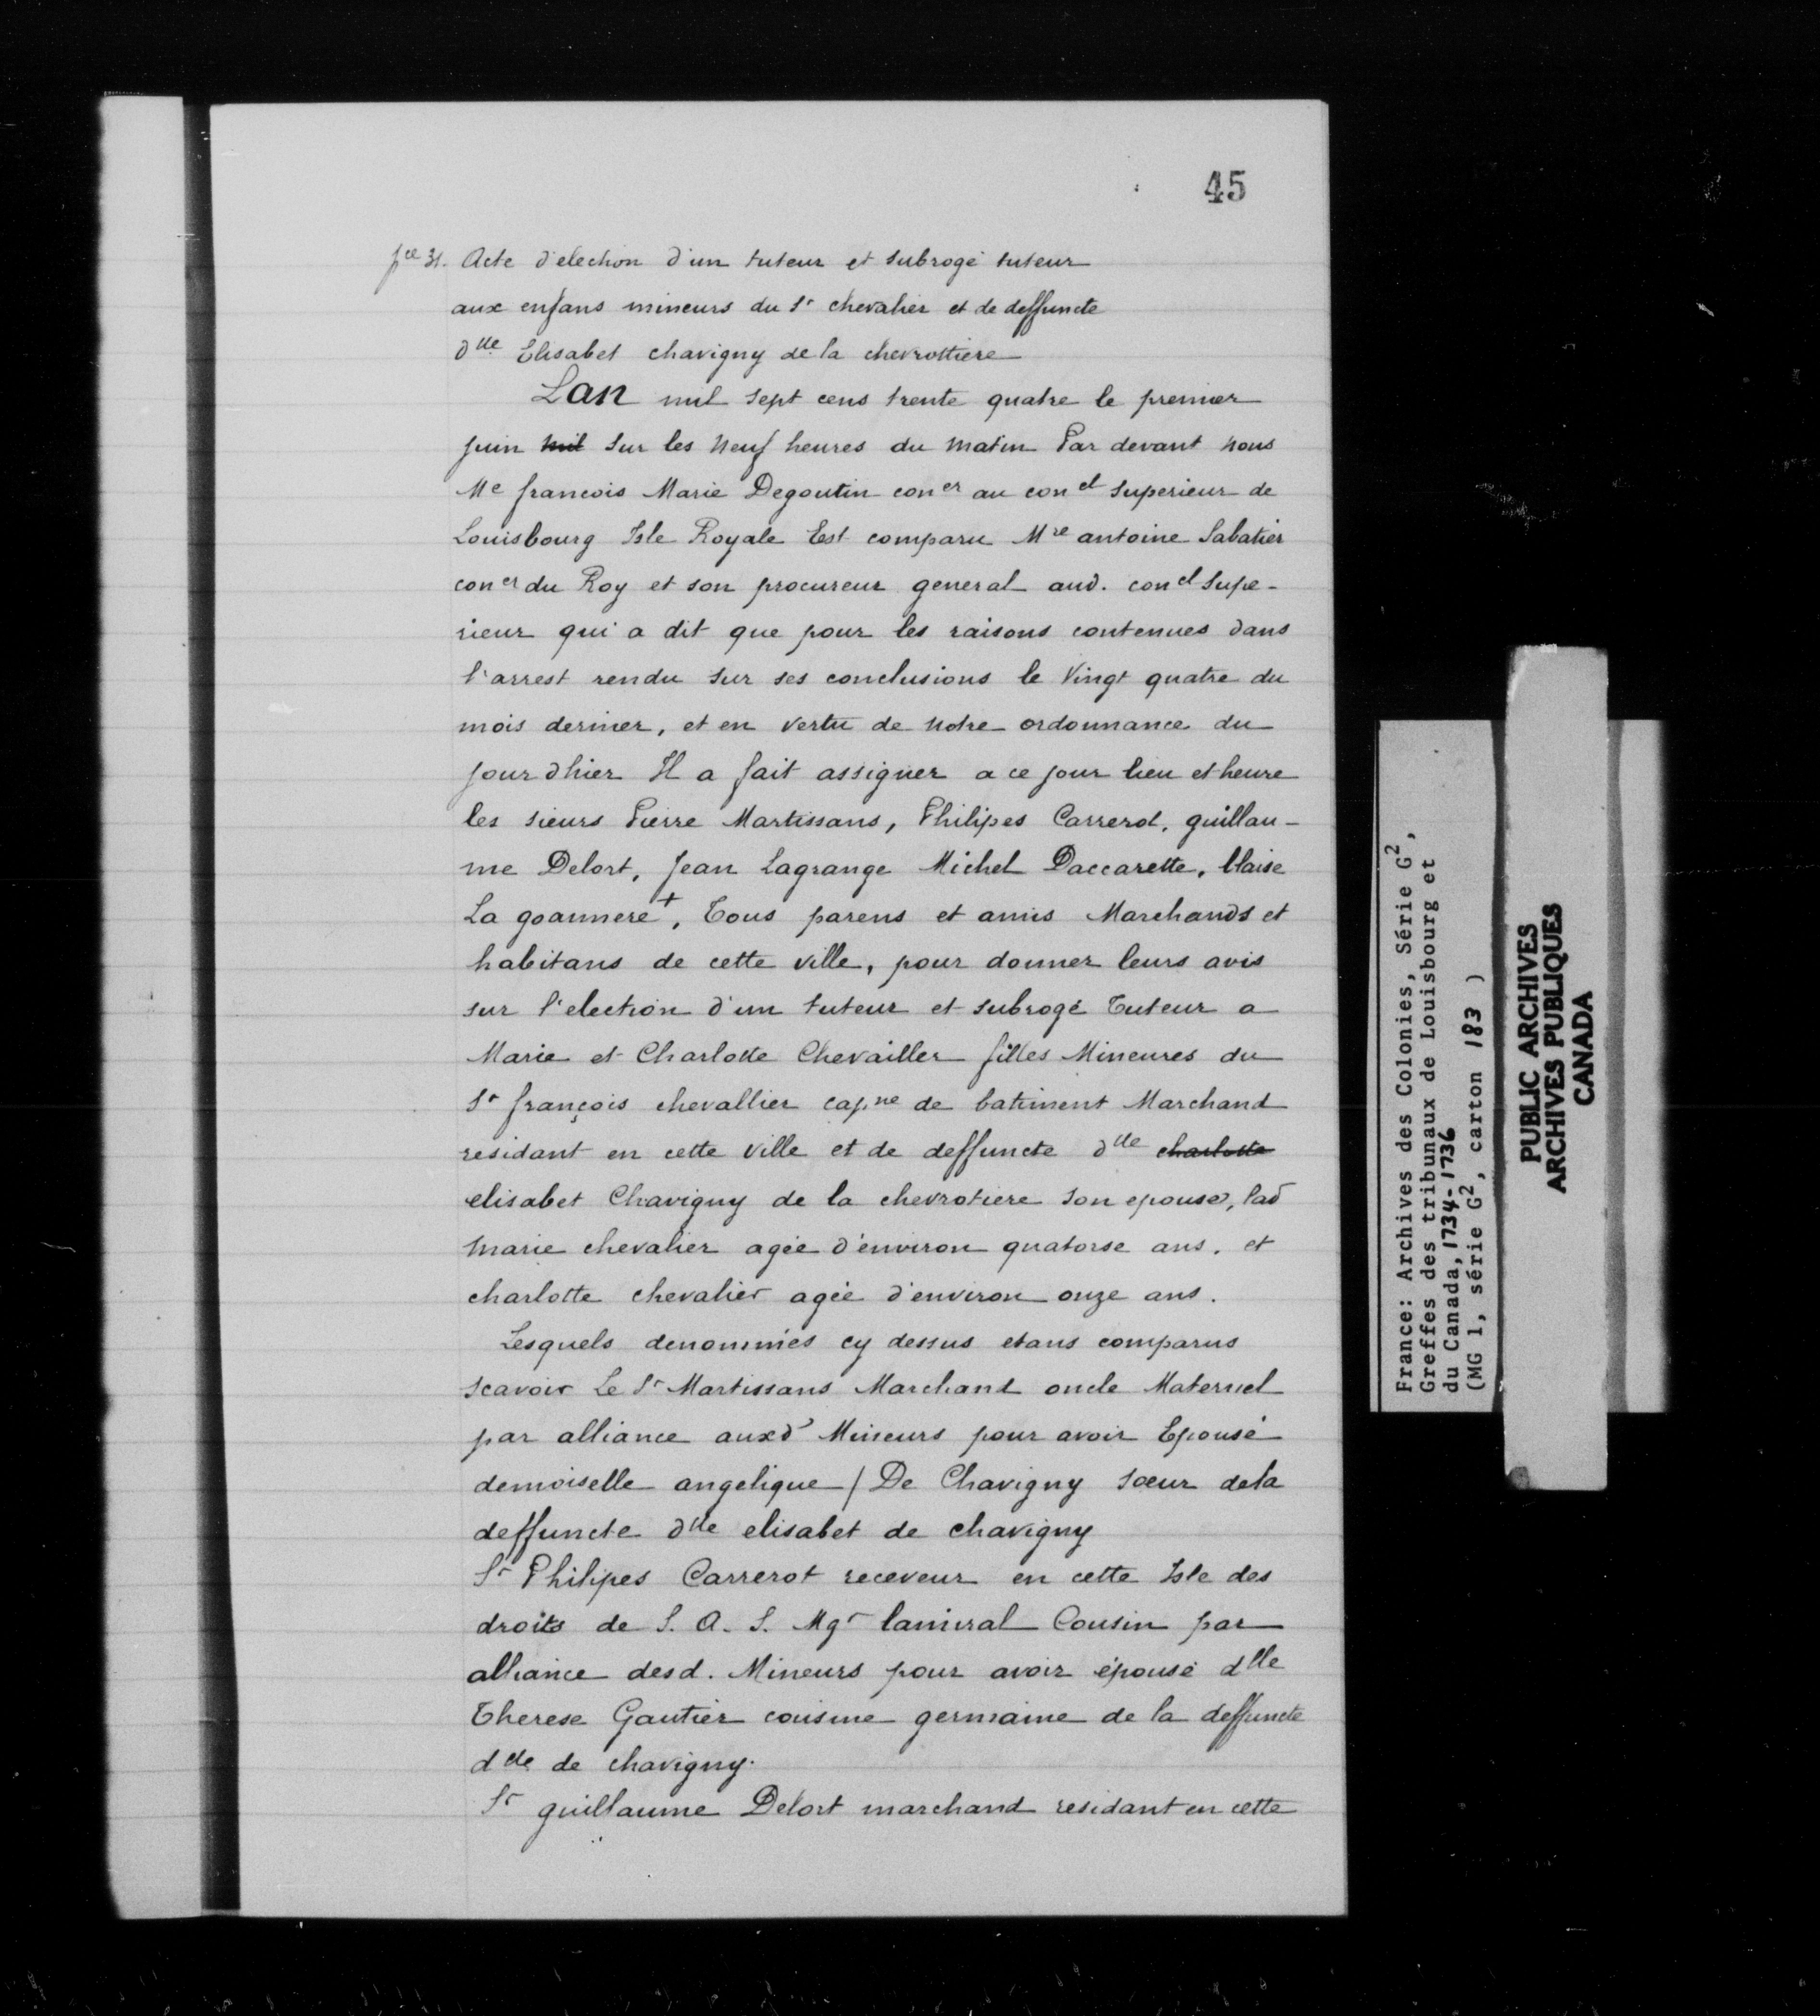 45
pce 31. Acte d'election d'un tuteur et subrogé tuteur
aux enfans mineurs du Sr chevalier et de deffuncte
dlle Elisabet chavigny de la chevrottiere
Lan mil sept cens trente quatre le premier
juin mil sur les Neuf heures du matin Par devant nous
Me francois Marie Degoutin coner au conel superieur de
Louisbourg Isle Royale Est comparu Mre antoine Sabatier
coner du Roy et son procureur general aud. conel supe-
rieur qui a dit que pour les raisons contenues dans
l'arrest rendu sur ses conclusions le Vingt quatre du
mois dernier, et en vertu de notre ordonnance du
jour dhier Il a fait assigner a ce jour lieu et heure
les sieurs Pierre Martissans, Philipes Carrerot, guillau-
me Delort, Jean Lagrange Michel Daccarette, blaise
La goannere +, Tous parens et amis Marchands et
habitans de cette ville, pour donner leurs avis
sur l'election d'un tuteur et subrogé Tuteur a
Marie et Charlotte Chevailler filles Mineures du
Sr françois chevallier capne de batiment Marchand
residant en cette ville et de deffuncte dlle charlotte
elisabet Chavigny de la chevrotiere son epouse, lad
marie chevalier agée d'environ quatorse ans, et
charlotte chevalier agée d'environ onze ans.
Lesquels denommés cy dessus etans comparus
scavoir Le Sr Martissans Marchand oncle Maternel
par alliance auxd Mineurs pour avoir Epousé
demoiselle angelique / De Chavigny sœur dela
deffuncte dlle elisabet de chavigny
Sr Philipes Carrerot receveur en cette Isle des
droits de S. A. S. Mgr lamiral Cousin par
alliance desd. Mineurs pour avoir épousé dlle
Therese Gautier cousine germaine de la deffuncte
dlle de chavigny.
Sr guillaume Delort marchand residant en cette
France: Archives des Colonies, Série G2,
Greffes des tribunaux de Louisbourg et
du Canada, 1734-1736
(MG 1, série G2, carton 183 )
PUBLIC ARCHIVES
ARCHIVES PUBLIQUES
CANADA